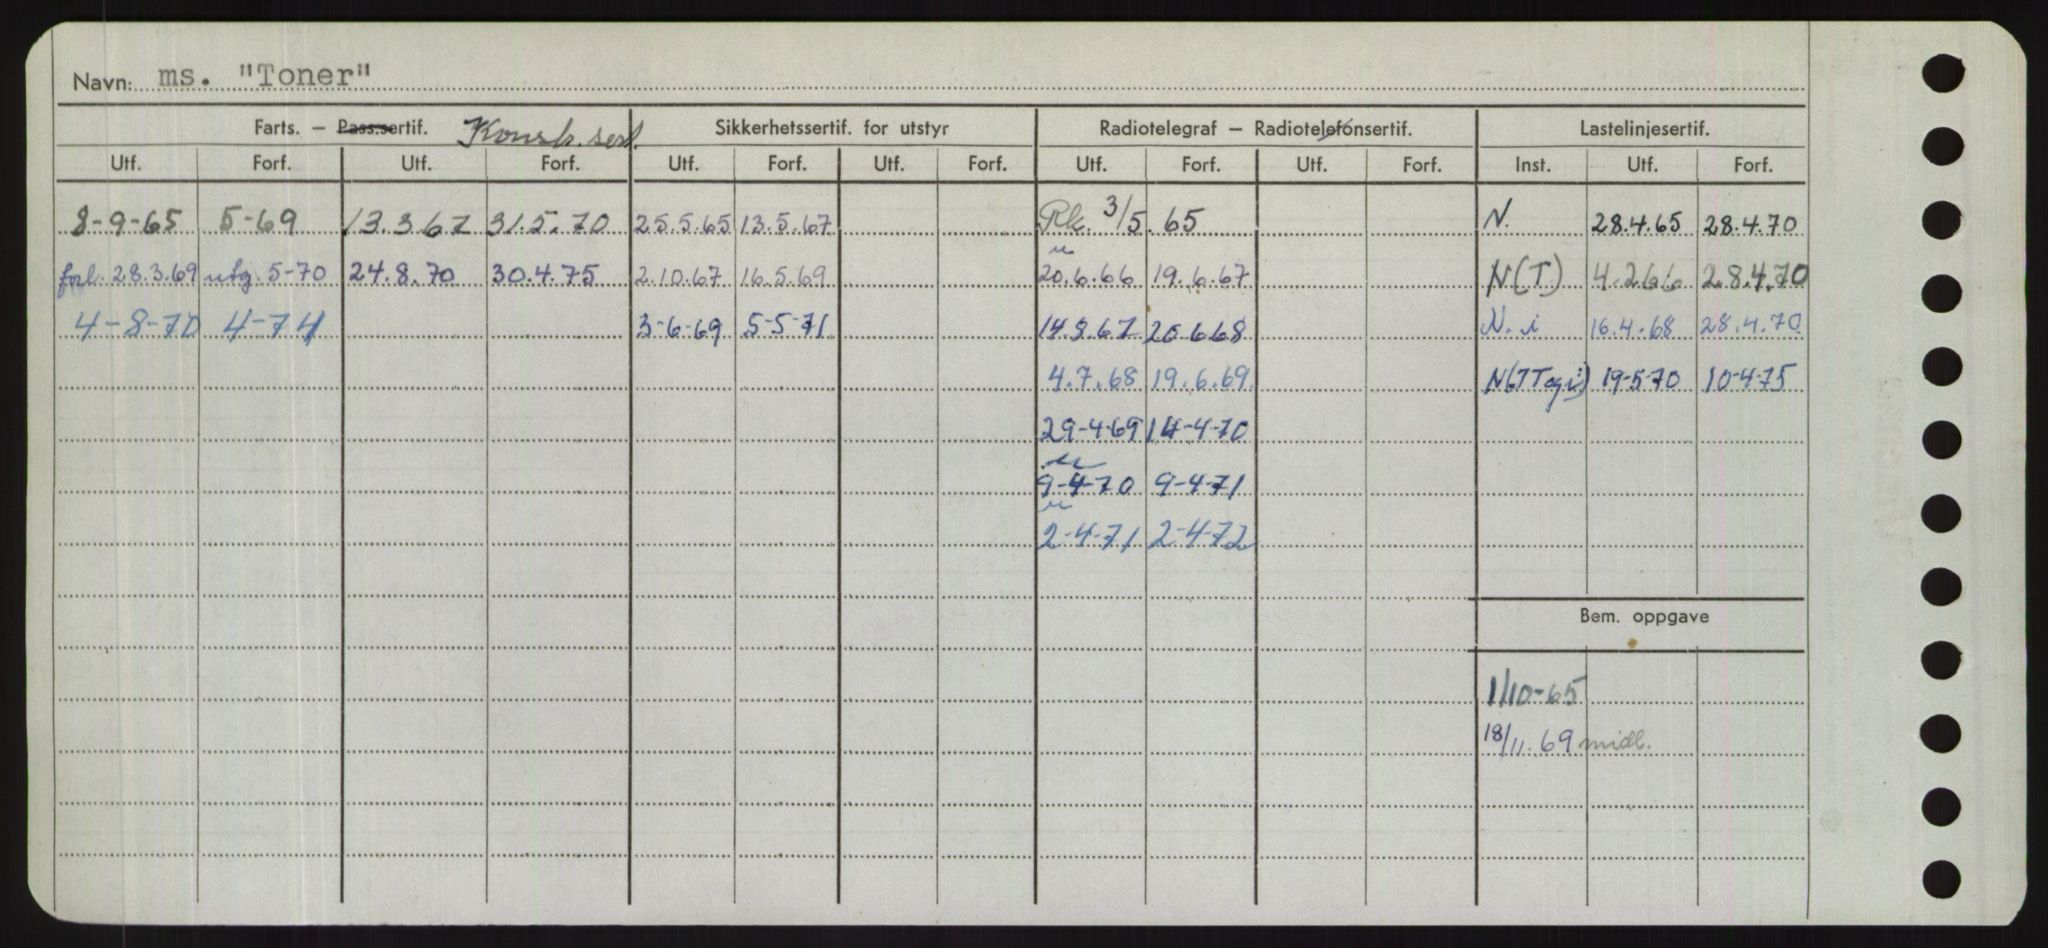 Navn: ms. "Toner"
Farts. – Pass.sertif. Konstr. sert. Sikkerhetssertif. for utstyr Radiotelegraf – Radiotelefonsertif. Lastelinjesertif.
Utf. Forf. Utf. Forf. Utf. Forf. Utf. Forf. Utf. Forf. Utf. Forf. Inst. Utf. Forf.
8-9-65 5-69 13.3.67 31.5.70 25.5.65 13.5.67 Rk. 3/5.65 N. 28.4.65 28.4.70
forl. 28.3.69 utg. 5-70 24.8.70 30.4.75 2.10.67 16.5.69 u 20.6.66 19.6.67 N(T) 4.2.66 28.4.70
4-8-70 4-74 3-6-69 5-5-71 14.8.67 20.6.68 N. i 16.4.68 28.4.70
4.7.68 19.6.69 N(TT og i) 19-5-70 10-4-75
29-4-69 14-4-70
u
9-4-70 9-4-71
u
2-4-71 2-4-72
Bem. oppgave
1/10-65
18/11.69 midl.